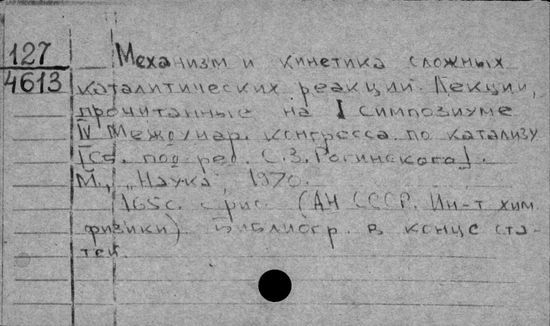 127
4613
Механизм и кинетика сложных
каталитических реакций. Лекции,
прочитанные на I симпозиуме
IV Междунар. конгресса по катализу
[Сб. под ред. С.З. Рогинского].
М., "Наука", 1970.
165с. с рис. (АН СССР. Ин-т хим.
физики). Библиогр. в конце ста-
тей.